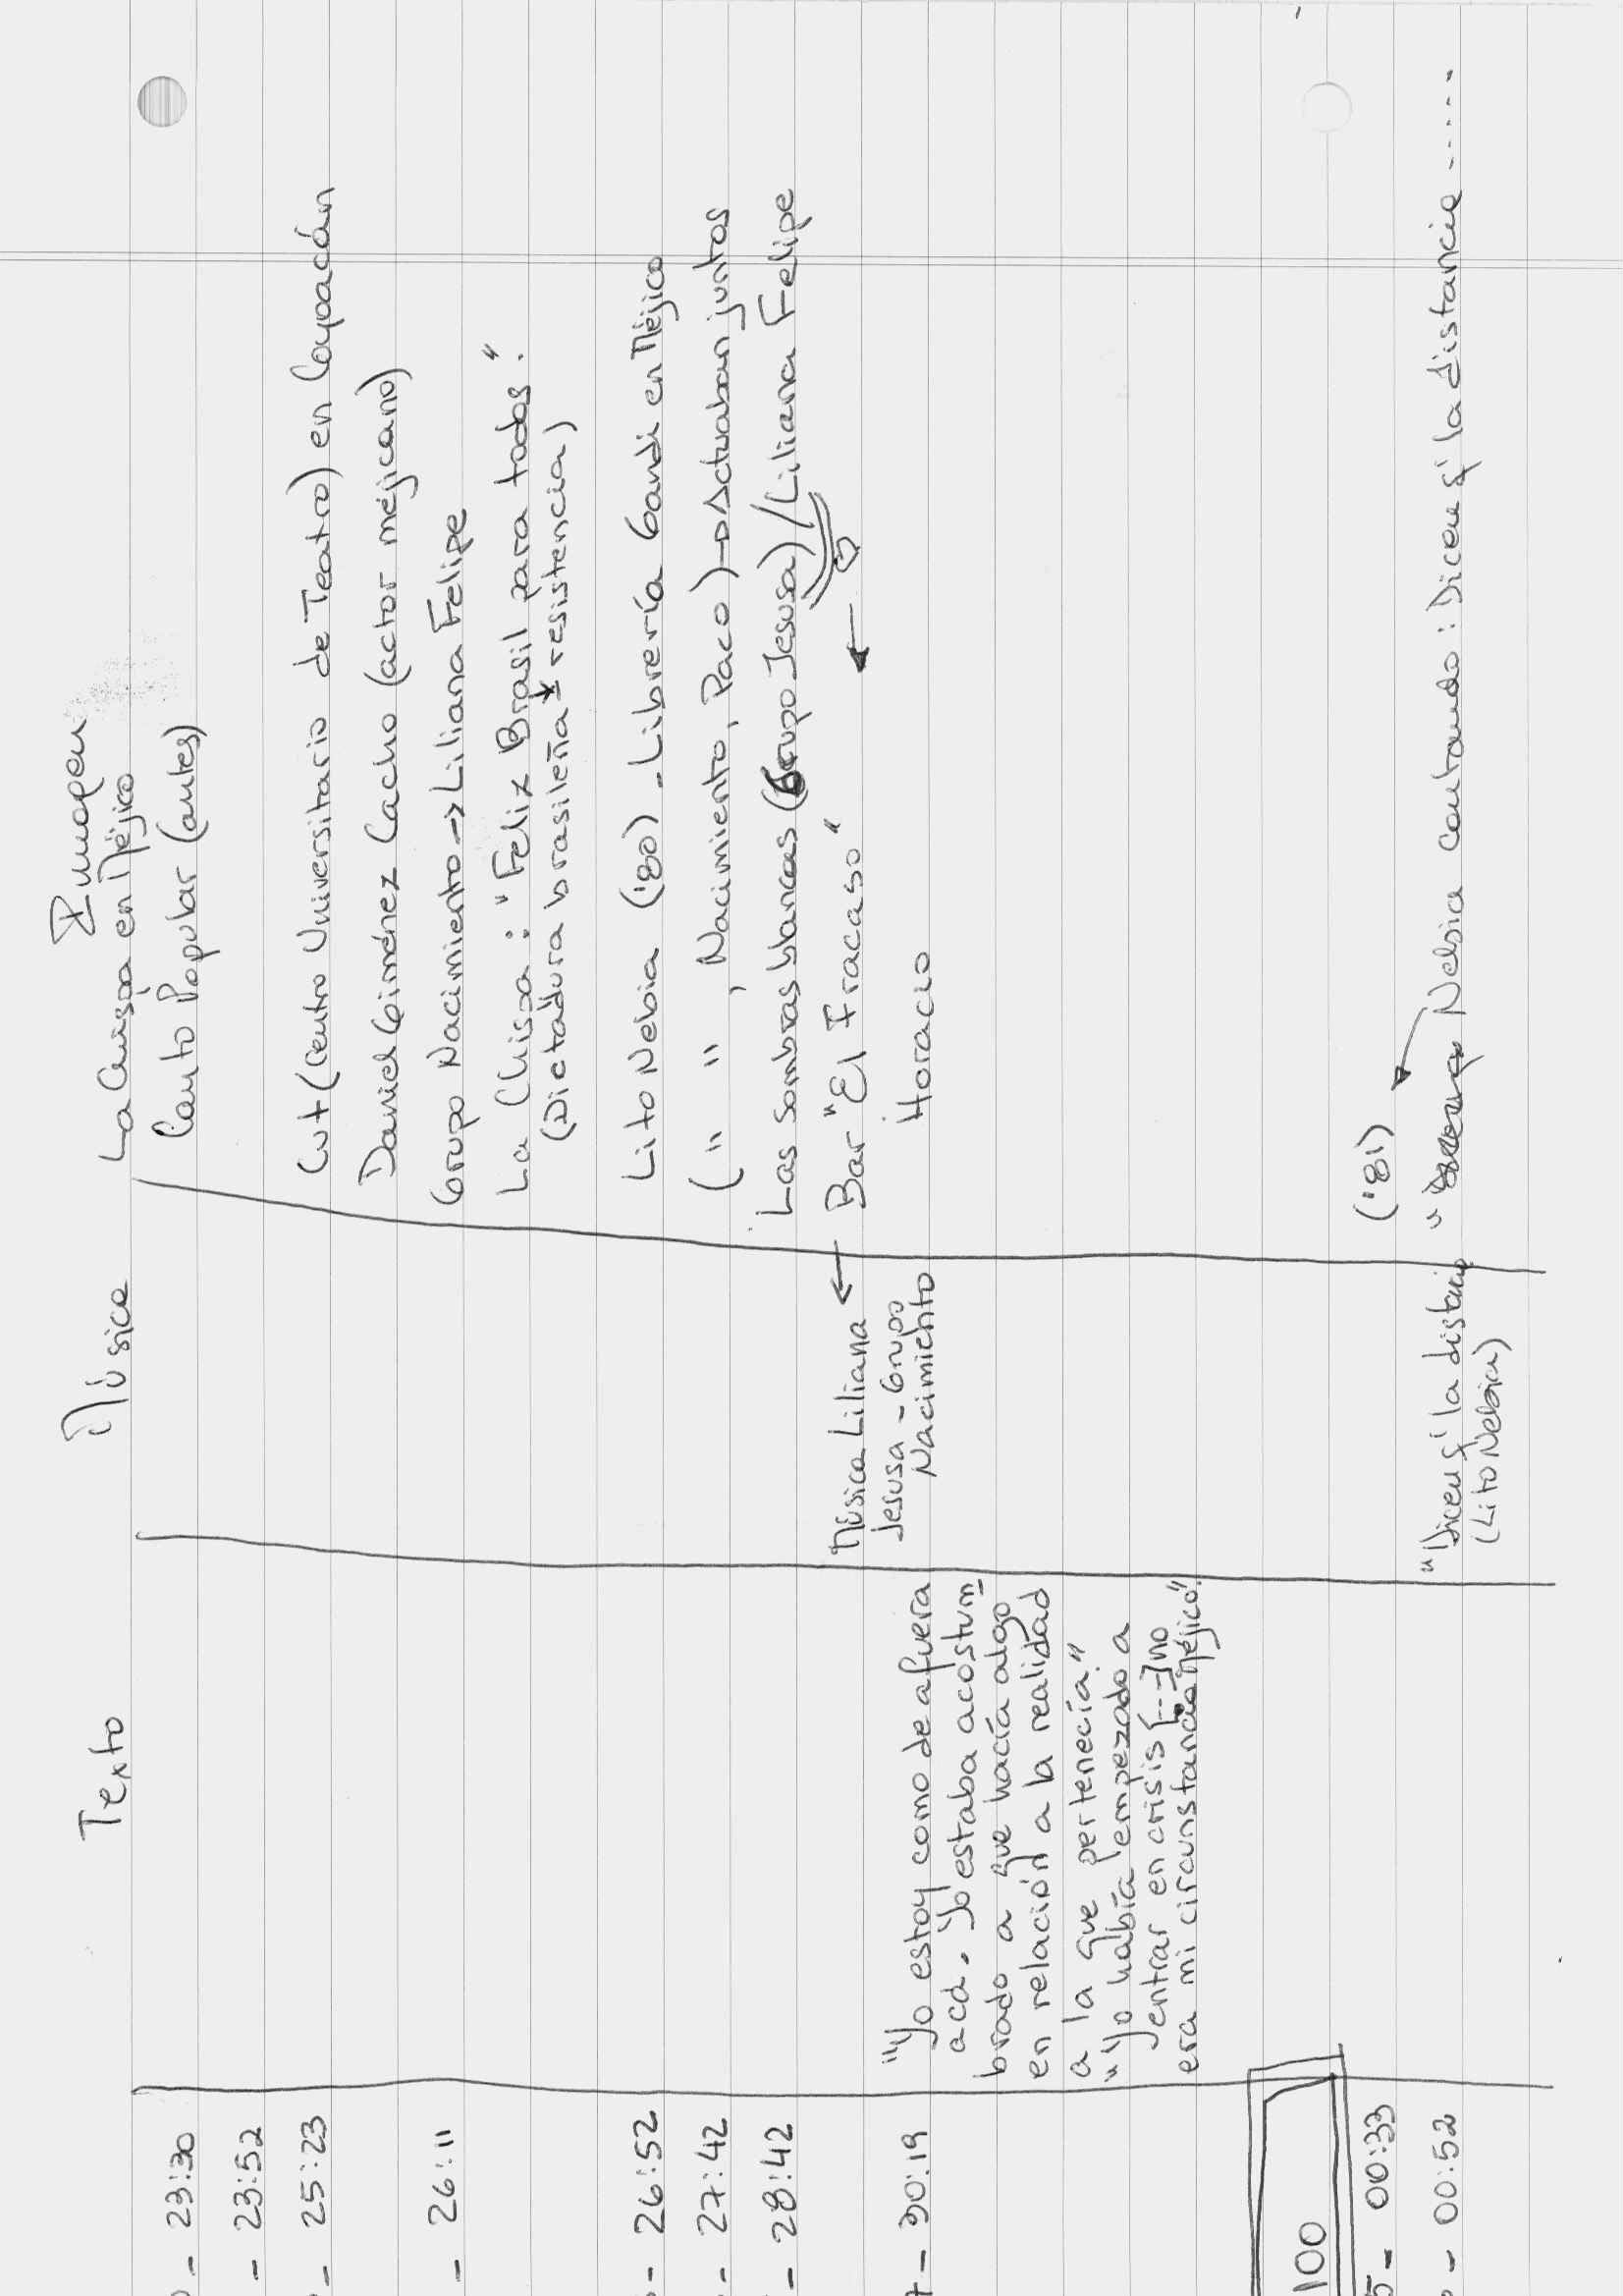 Texto
Música
Imagen
La Chispa en Méjico
- 23:30
Canto Popular (antes)
- 23:52
- 25:23
Cut (Centro Universitario de Teatro) en Coyoacán
Daniel Giménez Cacho (actor mejicano)
- 26:11
Grupo Nacimiento → Liliana Felipe
La Chispa: "Feliz Brasil para todos".
(Dictadura brasileña * resistencia)
- 26:52
Lito Nebia ('80) - Librería Gandi en Méjico
- 27:42
(" ", Nacimiento, Paco) → Actuaban juntos
- 28:42
Las sombras blancas (Grupo Jesusa) / Liliana Felipe
Música Liliana ← Bar "El Fracaso" ←
Jesusa - Grupo
Nacimiento
Horacio
7 - 30:19
"Yo estoy como de afuera
acá. Yo estaba acostum
brado a que hacía algo
en relación a la realidad
a la que pertenecía."
"Yo había empezado a
entrar en crisis [...] no
era mi circunstancia Méjico".
100
5 - 00:33
('81)
- 00:52
"Dicen q' la distancia
(Lito Nebia)
" Nebia cantando: Dicen q' la distancia ......